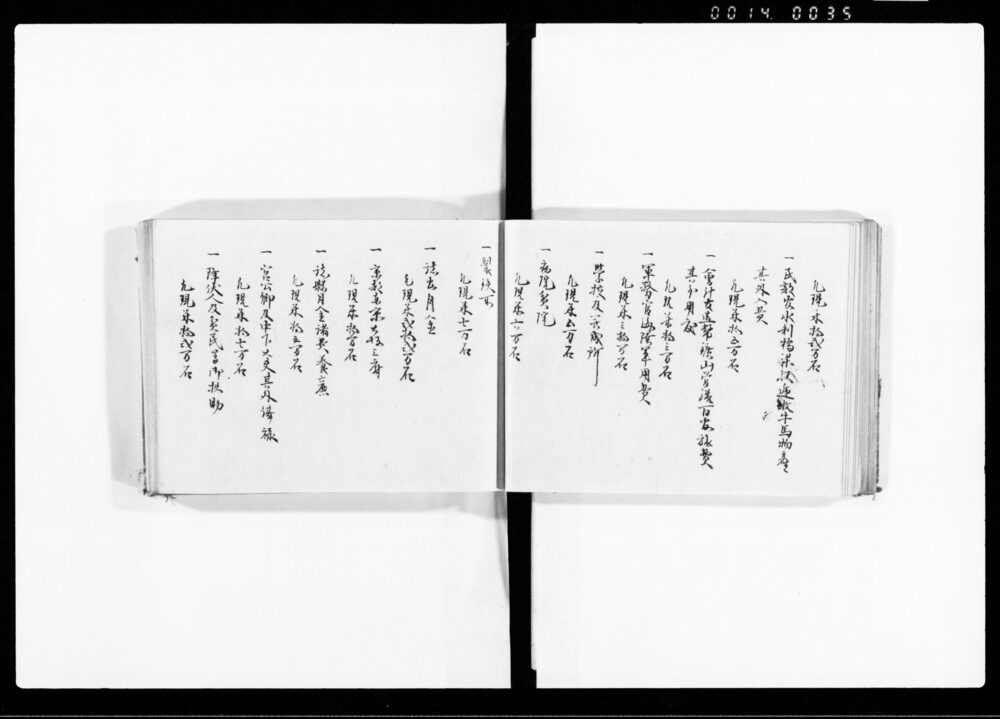 0014 0035
凡現米拾弐万石
一民部省水利橋梁 牛馬物産
其外入費
凡現米拾五万石
一會計 造幣鑛山營繕百官旅費
其外用度
凡現米拾三万石
一軍務官海陸軍用費
凡現米三拾万石
一學校及 成所
凡現米五万石
一病院貧院
凡現米六万石
一製鉄所
凡現米七万石
一諸官月金
凡現米弐拾弐万石
一京都東京大坂三府
凡現米拾万石
一諸縣月金諸費養廉
凡現米拾五万石
一宮公卿及中下大夫其外俸禄
凡現米拾七万石
一降伏人及貧民等御扶助
凡現米拾弐万石